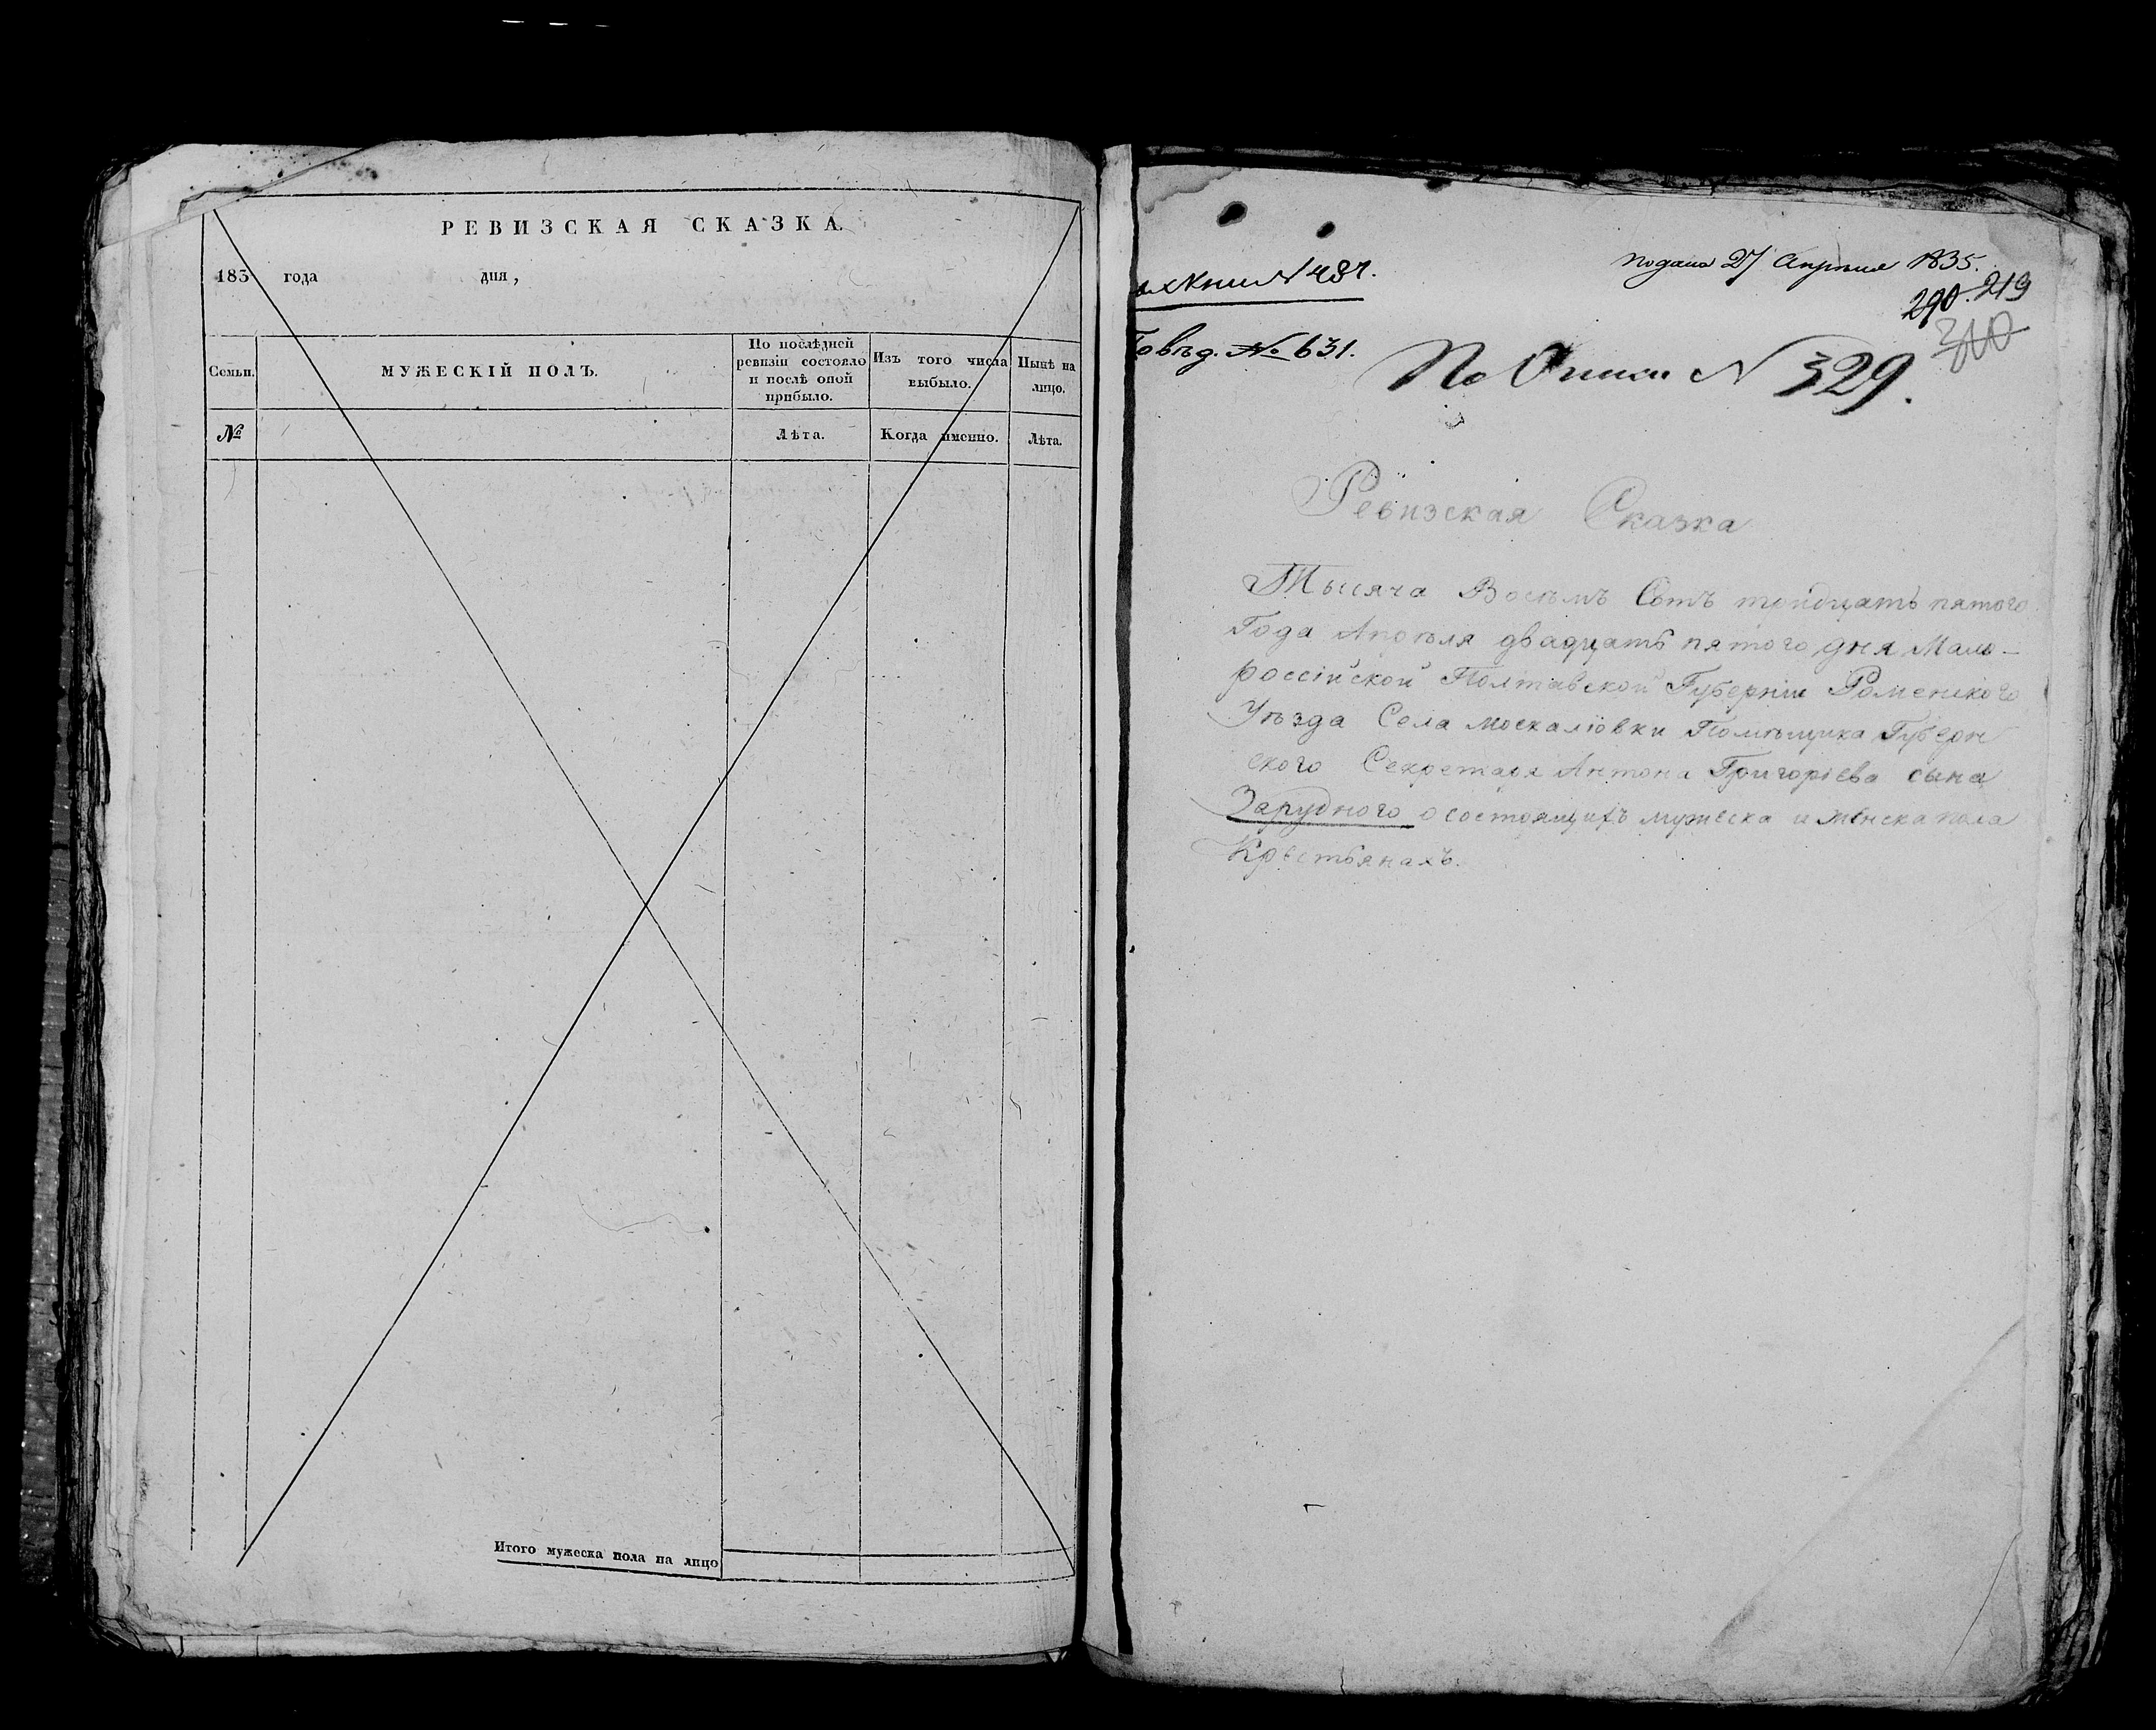 РЕВИЗСКАЯ СКАЗКА
183 года дня,
Семьи.
МУЖЕСКІЙ ПОЛЪ.
По послѣдней
ревизіи состояло
и послѣ оной
прибыло.
Изъ того числа
выбыло.
Нынѣ на
лицо.
№
Лѣта.
Когда именно.
Лѣта.
Итого мужеска пола на лицо
подана 27 Апрѣля 1835.
290. 219
300
№ 631.
По Описи N 329.
Ревизская Сказка
Тысяча Восѣмъ Сотъ тридцать пятого
Года Апрѣля двадцать пятого дня Мало-
россійской Полтавской Губерніи Роменского
Уѣзда Села Москалювки Помѣщика Губерн
ского Секретаря Антона Григоріева сына
Зарудного о состоящихъ мужеска и женска пола
Крестьянахъ.